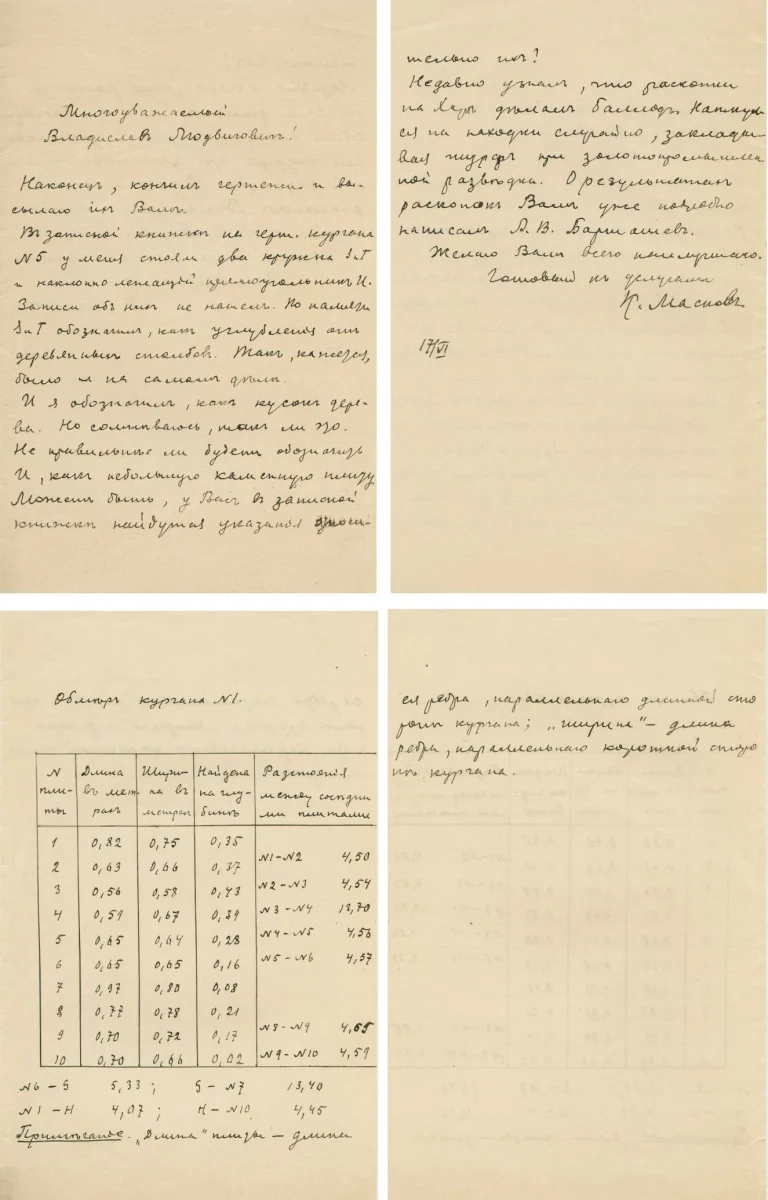 Многоуважаемый
Владиславъ Людвиговичъ!
Наконецъ, кончилъ чертежи и вы-
сылаю ихъ Вамъ.
Въ записной книжкѣ на черт. кургана
N5 у меня стоятъ два кружка S и T
и наклонно лежащій прямоугольникъ И.
Записи объ нихъ не нашелъ. По памяти
S и T обозначилъ, какъ углубленія отъ
деревянныхъ столбовъ. Такъ, кажется,
было и на самомъ дѣлѣ.
И я обозначилъ, какъ кусокъ дере-
ва. Но сомнѣваюсь, такъ ли это.
Не правильнѣе ли будетъ обозначить
И, какъ небольшую каменную плиту
Можетъ быть, у Васъ въ записной
книжкѣ найдутся указанія относи-
тельно ихъ?
Недавно узналъ, что раскопки
на Харѣ дѣлалъ Баллодъ. Наткнул-
ся на находки случайно, заклады-
вая шурфъ при золотопромышлен
ной развѣдкѣ. О результатахъ
раскопокъ Вамъ уже подробно
написалъ А. В.
Желаю Вамъ всего наилучшаго.
Готовый къ услугамъ
К. Масковъ
17/VI
Обмѣръ кургана N1.
N пли-ты | Длина въ мет-рахъ | Шири-на въ метрахъ | Найдена на глу-бинѣ | Разстоянія между сосѣдни-ми плитами
1 0,82 0,75 0,35
N1-N2 4,50
2 0,63 0,66 0,37
N2-N3 4,54
3 0,56 0,58 0,43
N3-N4 12,70
4 0,59 0,67 0,39
N4-N5 4,56
5 0,65 0,64 0,28
N5-N6 4,57
6 0,65 0,65 0,16
7 0,97 0,80 0,08
8 0,77 0,78 0,21
N8-N9 4,65
9 0,70 0,72 0,17
N9-N10 4,59
10 0,70 0,66 0,02
N6 - G 5,33; G - N7 13,40
N1 - H 4,07; H - N10 4,45
Примѣчаніе. „Длина" плиты - длина
ея ребра, параллельнаго длинной сто
ронѣ кургана; „ширина" - длина
ребра, параллельнаго короткой сторо
нѣ кургана.